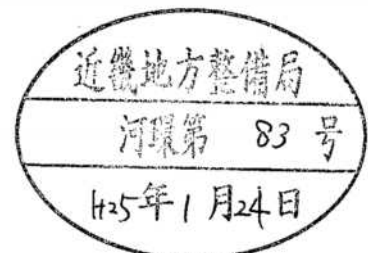 近畿地方整備局
河環第 83 号
H25年1月24日